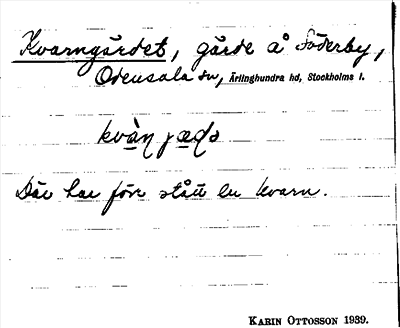 Kvarngärdet, gärde å Söderby,
Odensala sn, Ärlinghundra hd, Stockholms l.
kvàn jæḍə
Där har förr stått en kvarn.
KARIN OTTOSSON 1939.